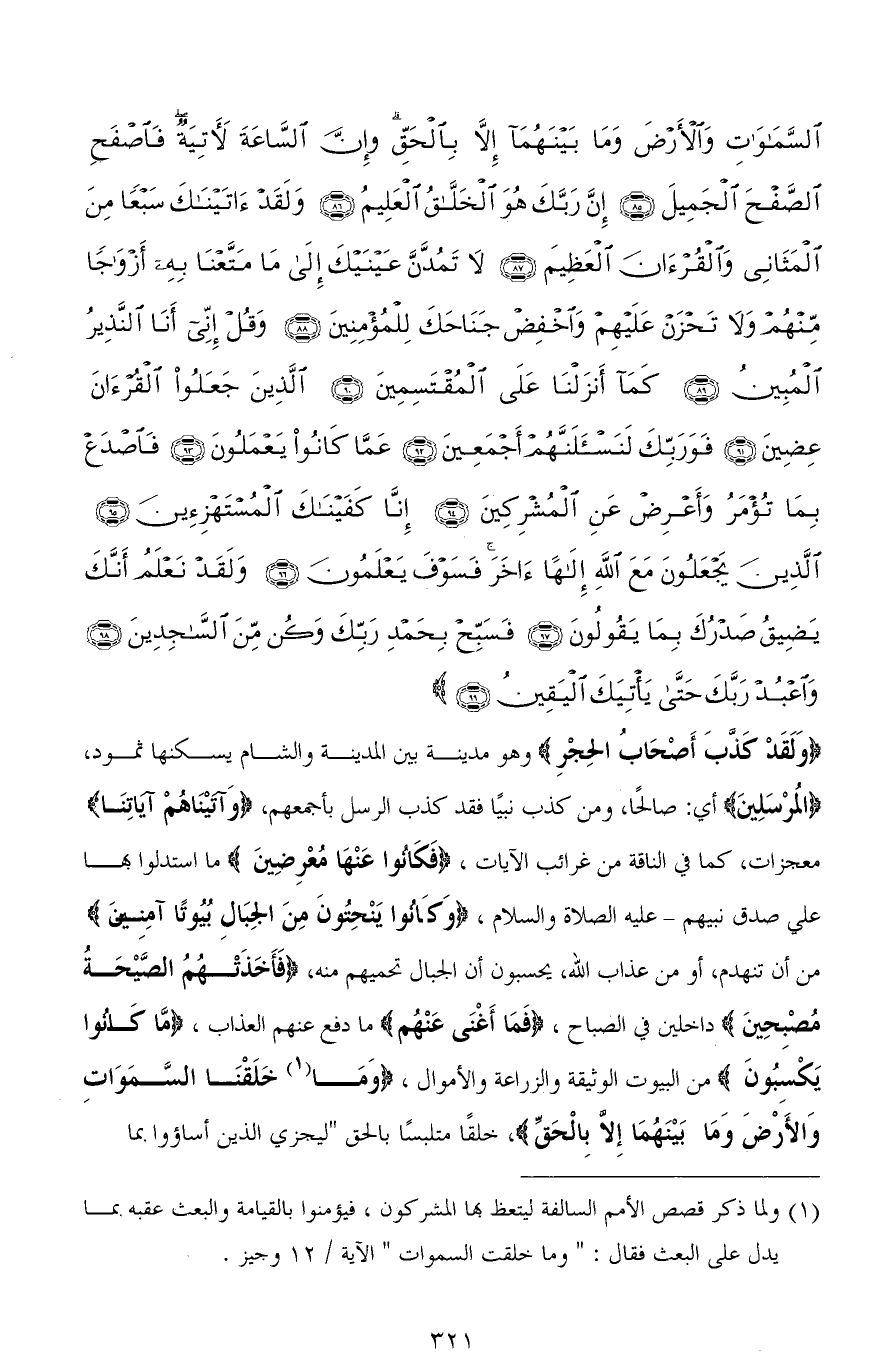 ٱلسَّمَٰوَٰتِ وَٱلْأَرْضَ وَمَا بَيْنَهُمَآ إِلَّا بِٱلْحَقِّ ۗ وَإِنَّ ٱلسَّاعَةَ لَأٓتِيَةٌ ۖ فَٱصْفَحِ
ٱلصَّفْحَ ٱلْجَمِيلَ ﴿٨٥﴾ إِنَّ رَبَّكَ هُوَ ٱلْخَلَّٰقُ ٱلْعَلِيمُ ﴿٨٦﴾ وَلَقَدْ ءَاتَيْنَٰكَ سَبْعًا مِنَ
ٱلْمَثَانِى وَٱلْقُرْءَانَ ٱلْعَظِيمَ ﴿٨٧﴾ لَا تَمُدَّنَّ عَيْنَيْكَ إِلَىٰ مَا مَتَّعْنَا بِهِۦٓ أَزْوَٰجًا
مِّنْهُمْ وَلَا تَحْزَنْ عَلَيْهِمْ وَٱخْفِضْ جَنَاحَكَ لِلْمُؤْمِنِينَ ﴿٨٨﴾ وَقُلْ إِنِّىٓ أَنَا ٱلنَّذِيرُ
ٱلْمُبِينُ ﴿٨٩﴾ كَمَآ أَنزَلْنَا عَلَى ٱلْمُقْتَسِمِينَ ﴿٩٠﴾ ٱلَّذِينَ جَعَلُوا۟ ٱلْقُرْءَانَ
عِضِينَ ﴿٩١﴾ فَوَرَبِّكَ لَنَسْـَٔلَنَّهُمْ أَجْمَعِينَ ﴿٩٢﴾ عَمَّا كَانُوا۟ يَعْمَلُونَ ﴿٩٣﴾ فَٱصْدَعْ
بِمَا تُؤْمَرُ وَأَعْرِضْ عَنِ ٱلْمُشْرِكِينَ ﴿٩٤﴾ إِنَّا كَفَيْنَٰكَ ٱلْمُسْتَهْزِءِينَ ﴿٩٥﴾
ٱلَّذِينَ يَجْعَلُونَ مَعَ ٱللَّهِ إِلَٰهًا ءَاخَرَ ۚ فَسَوْفَ يَعْلَمُونَ ﴿٩٦﴾ وَلَقَدْ نَعْلَمُ أَنَّكَ
يَضِيقُ صَدْرُكَ بِمَا يَقُولُونَ ﴿٩٧﴾ فَسَبِّحْ بِحَمْدِ رَبِّكَ وَكُن مِّنَ ٱلسَّٰجِدِينَ ﴿٩٨﴾
وَٱعْبُدْ رَبَّكَ حَتَّىٰ يَأْتِيَكَ ٱلْيَقِينُ ﴿٩٩﴾ ﴾
﴿وَلَقَدْ كَذَّبَ أَصْحَابُ الحِجْرِ ﴾ وهو مدينة بين المدينة والشام يسكنها ثمود،
﴿المُرْسَلِينَ﴾ أي: صالحًا، ومن كذب نبيًا فقد كذب الرسل بأجمعهم، ﴿وَآتَيْنَاهُمْ آيَاتِنَا﴾
معجزات، كما في الناقة من غرائب الآيات ، ﴿فَكَانُوا عَنْهَا مُعْرِضِينَ ﴾ ما استدلوا بها
علي صدق نبيهم – عليه الصلاة والسلام ، ﴿وَكَانُوا يَنْحِتُونَ مِنَ الجِبَالِ بُيُوتًا آمِنِينَ ﴾
من أن تنهدم، أو من عذاب الله، يحسبون أن الجبال تحميهم منه، ﴿فَأَخَذَتْهُمُ الصَّيْحَةُ
مُصْبِحِينَ ﴾ داخلين في الصباح ، ﴿فَمَا أَغْنَى عَنْهُم﴾ ما دفع عنهم العذاب ، ﴿مَّا كَانُوا
يَكْسِبُونَ ﴾ من البيوت الوثيقة والزراعة والأموال ، ﴿وَمَا(١) خَلَقْنَا السَّمَوَاتِ
وَالأَرْضَ وَمَا بَيْنَهُمَا إِلاَّ بِالْحَقِّ﴾، خلقًا متلبسًا بالحق "ليجزي الذين أساؤوا بما
(١) ولما ذكر قصص الأمم السالفة ليتعظ بها المشركون ، فيؤمنوا بالقيامة والبعث عقبه بما
يدل على البعث فقال : " وما خلقت السموات " الآية / ١٢ وجيز .
٣٢١